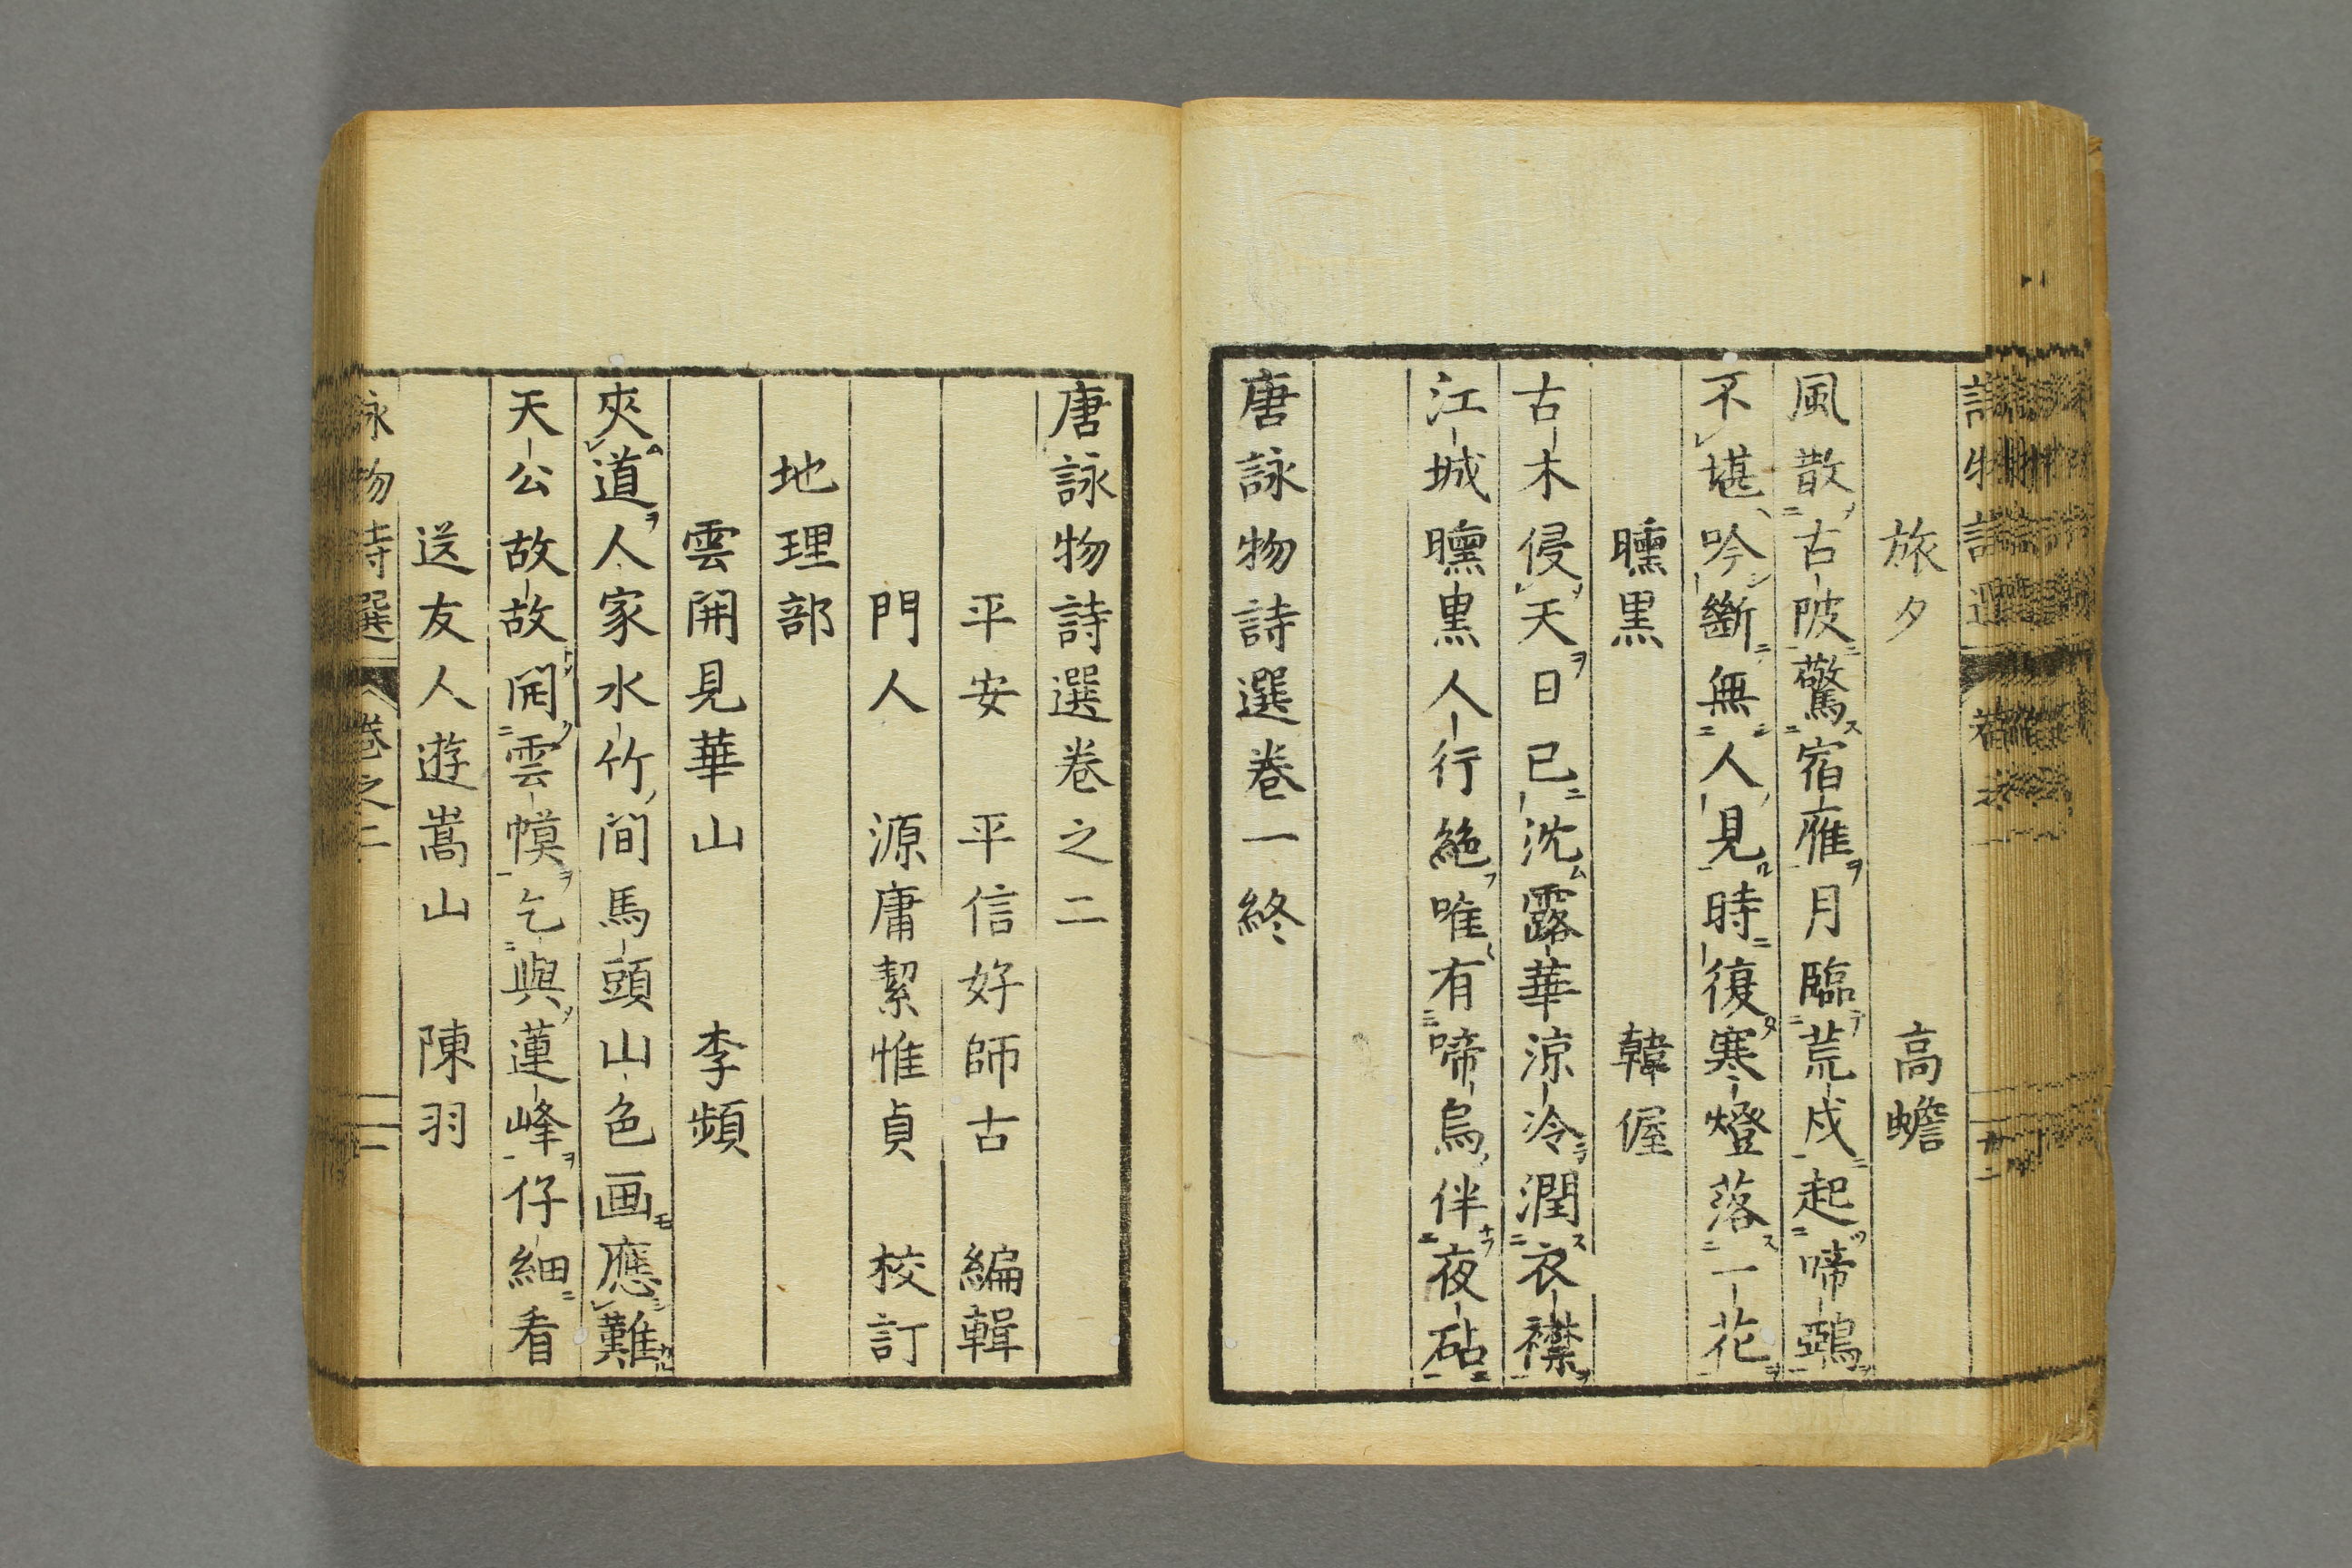 旅夕　高蟾
風散古陂驚宿雁月臨荒戍起啼鴉
不堪吟斷無人見時復寒燈落一花
曛黒　韓偓
古木侵天日已沈露華涼冷潤衣襟
江城曛黒人行絶唯有啼烏伴夜砧
唐詠物詩選卷一終
唐詠物詩選卷之二
平安　平信好師古　編輯
門人　源庸絜惟貞　校訂
地理部
雲開見華山　李頻
夾道人家水竹間馬頭山色画應難
天公故故開雲幙乞與蓮峰仔細看
送友人遊嵩山　陳羽
詠物詩選　卷之二